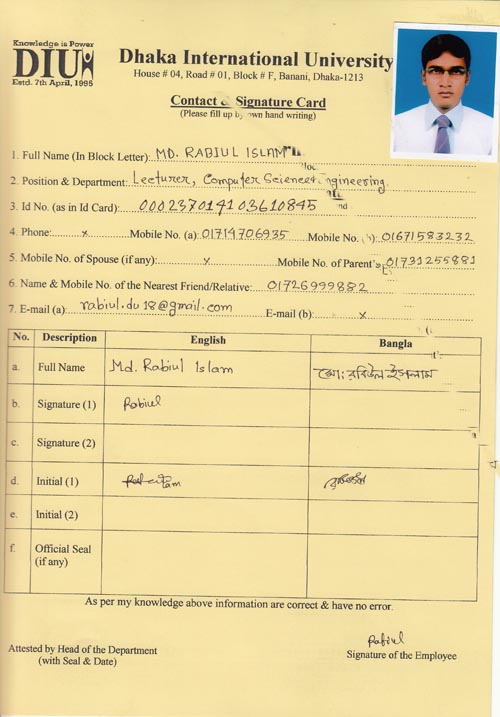 Knowledge is Power
DIU
Estd. 7th April, 1995
Dhaka International University
House # 04, Road # 01, Block # F, Banani, Dhaka-1213
Contact & Signature Card
(Please fill up by own hand writing)
1. Full Name (In Block Letter): MD. RABIUL ISLAM
2. Position & Department: Lecturer, Computer Science & Engineering
3. Id No. (as in Id Card): 000237014103610845
4. Phone: x Mobile No. (a): 01714706935 Mobile No. (b): 01671583232
5. Mobile No. of Spouse (if any): x Mobile No. of Parent's: 01731255881
6. Name & Mobile No. of the Nearest Friend/Relative: 01726999882
7. E-mail (a): rabiul.du18@gmail.com E-mail (b): x
No. Description English Bangla
a. Full Name Md. Rabiul Islam মো: রবিউল ইসলাম
b. Signature (1) Rabiul
c. Signature (2)
d. Initial (1)
e. Initial (2)
f. Official Seal
(if any)
As per my knowledge above information are correct & have no error.
Rabiul
Attested by Head of the Department Signature of the Employee
(with Seal & Date)